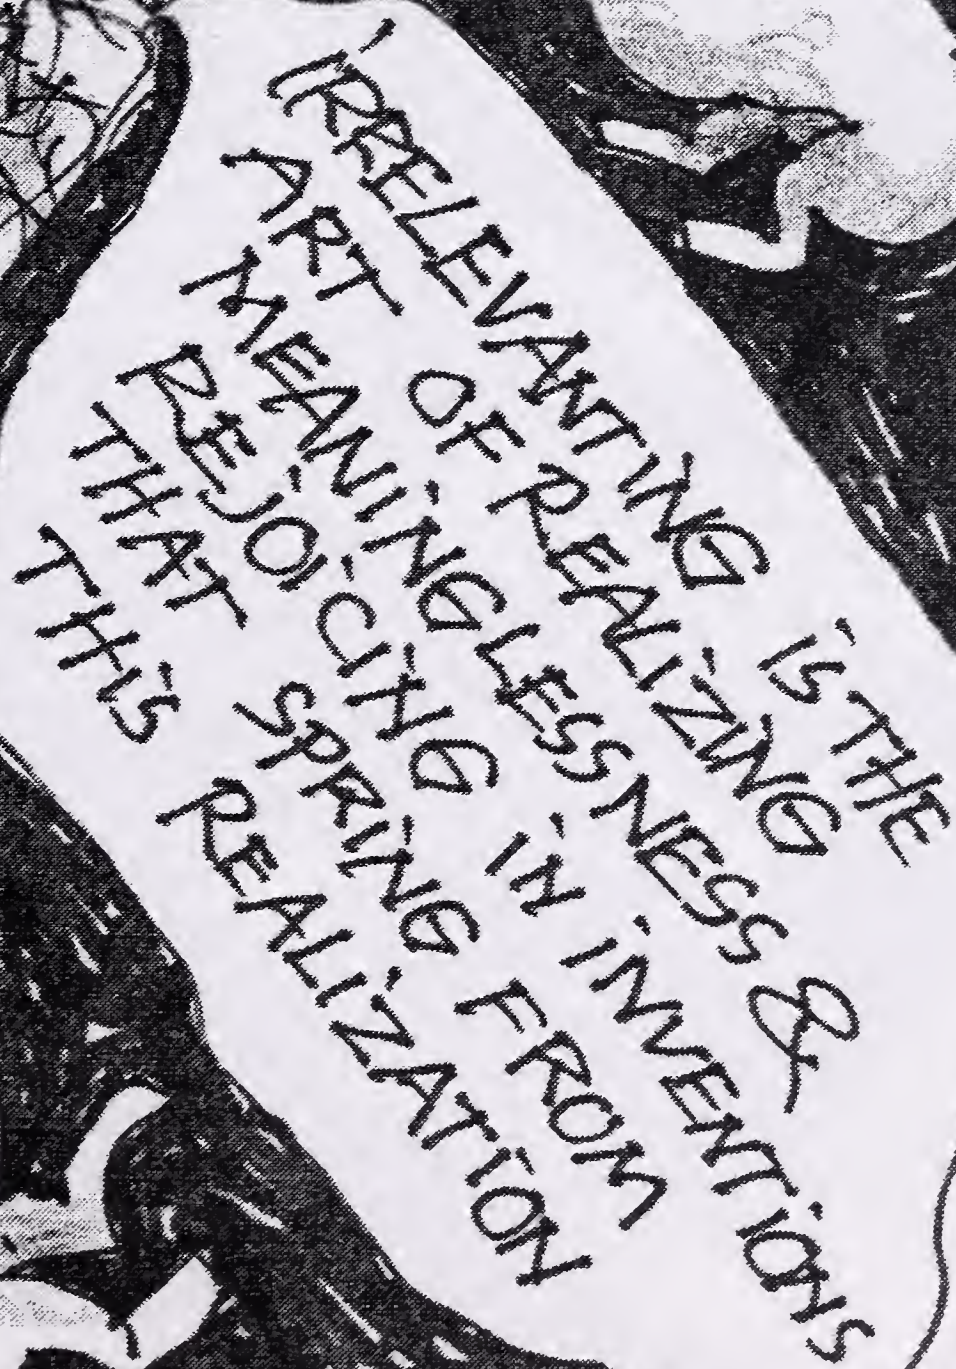 IRRELEVANTING IS THE
ART OF REALIZING
MEANINGLESSNESS &
REJOICING IN INVENTIONS
THAT SPRING FROM
THIS REALIZATION